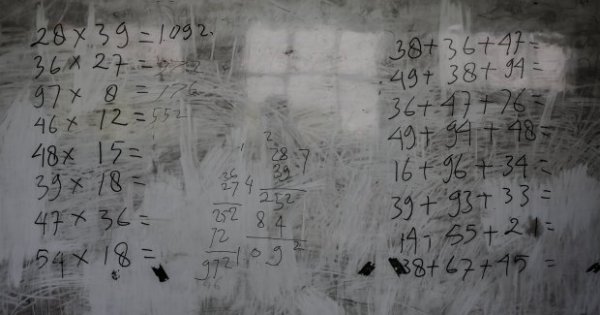 28 × 39 = 1092.
36 × 27 = 972
97 × 8 =
46 × 12 = 552
48 × 15 =
39 × 18 =
47 × 36 =
54 × 18 =
2
28
39
252
84
1092
36
27
252
72
972
38 + 36 + 47 =
49 + 38 + 94 =
36 + 47 + 76 =
49 + 94 + 48 =
16 + 96 + 34 =
39 + 93 + 33 =
14 + 55 + 21 =
38 + 67 + 45 =